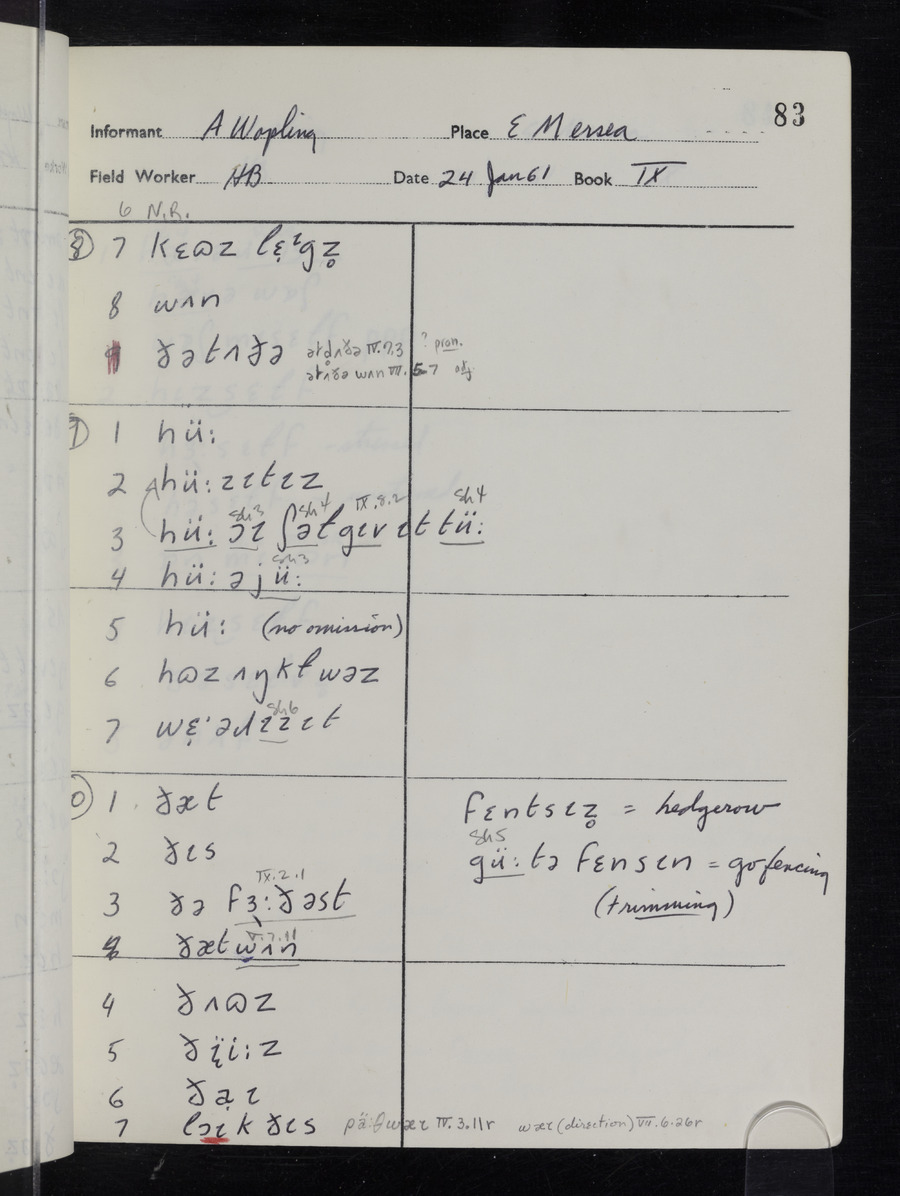 83
Informant A Wopling Place E Mersea
Field Worker HB Date 24 Jan 61 Book IX
6 N.R.
⑧ 7 kɛɷz lɛ̣ᶦgz̥
8 wʌn
ðətʌðə ətd̥ʌðə IV.7.3 ? pron.
ətʌðə wʌn VII. 5-7 adj.
1 hü:
2 hü:zɪtɪz
sh3 sh4 IX.8.2 sh4
3 hü: ɔɪ ʃəl gɪv ɪt tü:
sh3
4 hü: əjü:
5 hü: (no omission)
6 hɷz ʌŋkl wəz
sh6
7 wɛ̣·ədɪzɪt
1 ðæt fɛntsɪz̥ = hedgerow
sh5
2 ðɪs gü: tə fɛnsɪn = go fencing
IX.2.1
3 ðə fɜ:ðəst (trimming)
V.7.11
ðætwʌn
4 ðʌɷz
5 ðï̞i:z
6 ðạɪ
7 lɔɪk ðɪs pä:θwæɪ IV.3.11r wæɪ (direction) VII.6.26r